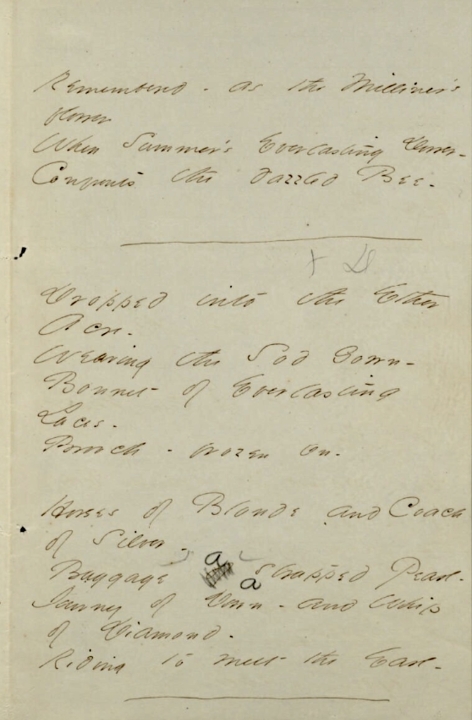 Remembered - as the Milliner's
flower
When Summer's Everlasting Dower -
Confronts the dazzled Bee.
Dropped into the Ether
Acre -
Wearing the Sod Gown -
Bonnet of Everlasting
Laces -
Brooch - frozen on -
Horses of Blonde - and Coach
of Silver -
Baggage a strapped Pearl -
Journey of Down - and Whip
of Diamond -
Riding to meet the Earl -